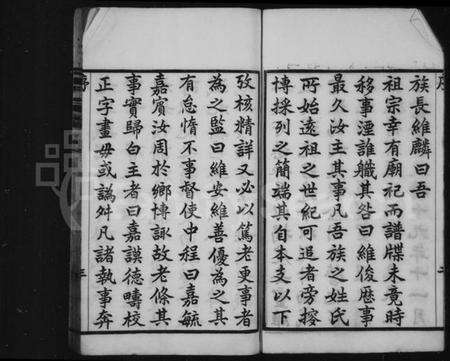 序
族長維麟曰吾
祖宗幸有廟祀而譜牒未竟時
移事湮誰軄其咎曰維俊歷事
最久汝主其事凡吾族之姓氏
所始遠祖之世紀可追者旁搜
博採列之簡端其自本支以下
二
攷核精詳又必以篤老更事者
為之監曰維安維善優為之其
有怠惰不事督使中程曰嘉毓
嘉賓汝周於鄉博諏故老條其
事實歸白主者曰嘉謨德疇校
正字畫毋或譌舛凡諸執事奔
序
三